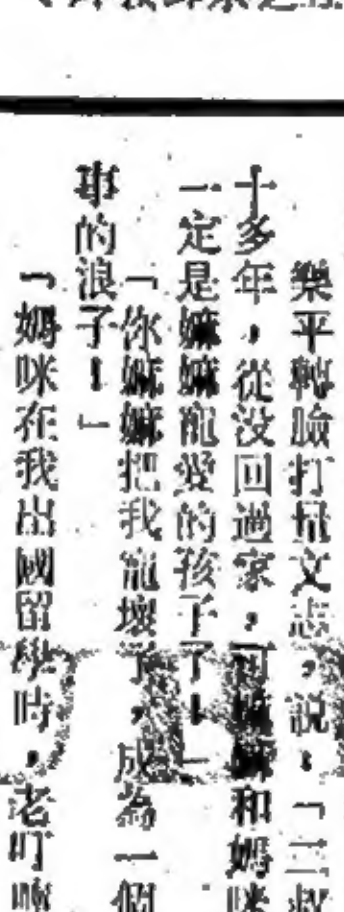 樂平轉臉打量文志，說：「三叔
十多年，從没回過家，可嫲嫲和媽咪
一定是嫲嫲寵愛的孩子了！」
「你嫲嫲把我寵壞了，成為一個
的浪子！」
「媽咪在我出國留學時，老叮嚀